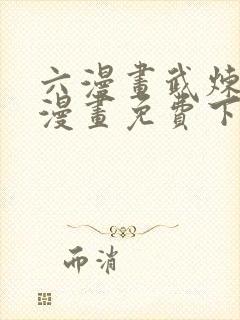 六漫畫武煉
漫畫免費下
而消